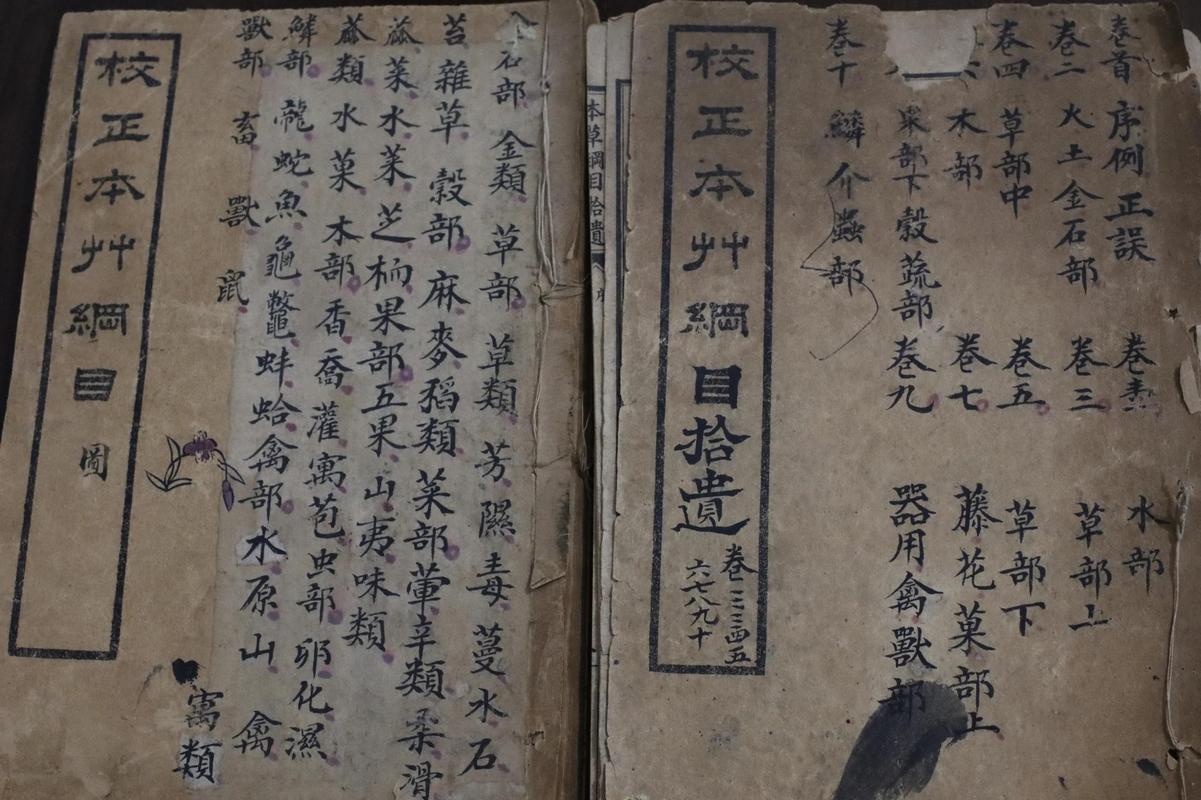 校正本艸綱目拾遺
卷一二三四五
六七八九十
卷首 序例 正誤 卷壹 水部
卷二 火土金石部 卷三 草部上
卷四 草部中 卷五 草部下
木部 卷七 藤花菓部上
菓部下 穀蔬部 卷九 器用禽獸部
卷十 鱗介蟲部
本草綱目拾遺
序
校正本艸綱目 圖
石部 金類 草部 草類 芳隰毒蔓水石
苔雜草 穀部 麻麥稻類 菜部葷辛類柔滑
蓏菜水菜芝栭果部五果山夷味類
蓏類水菓 木部香喬灌寓苞虫部 卵化濕
鱗部 龍蛇魚龜鱉蚌蛤禽部水原山 禽
獸部 畜 獸 鼠 寓類